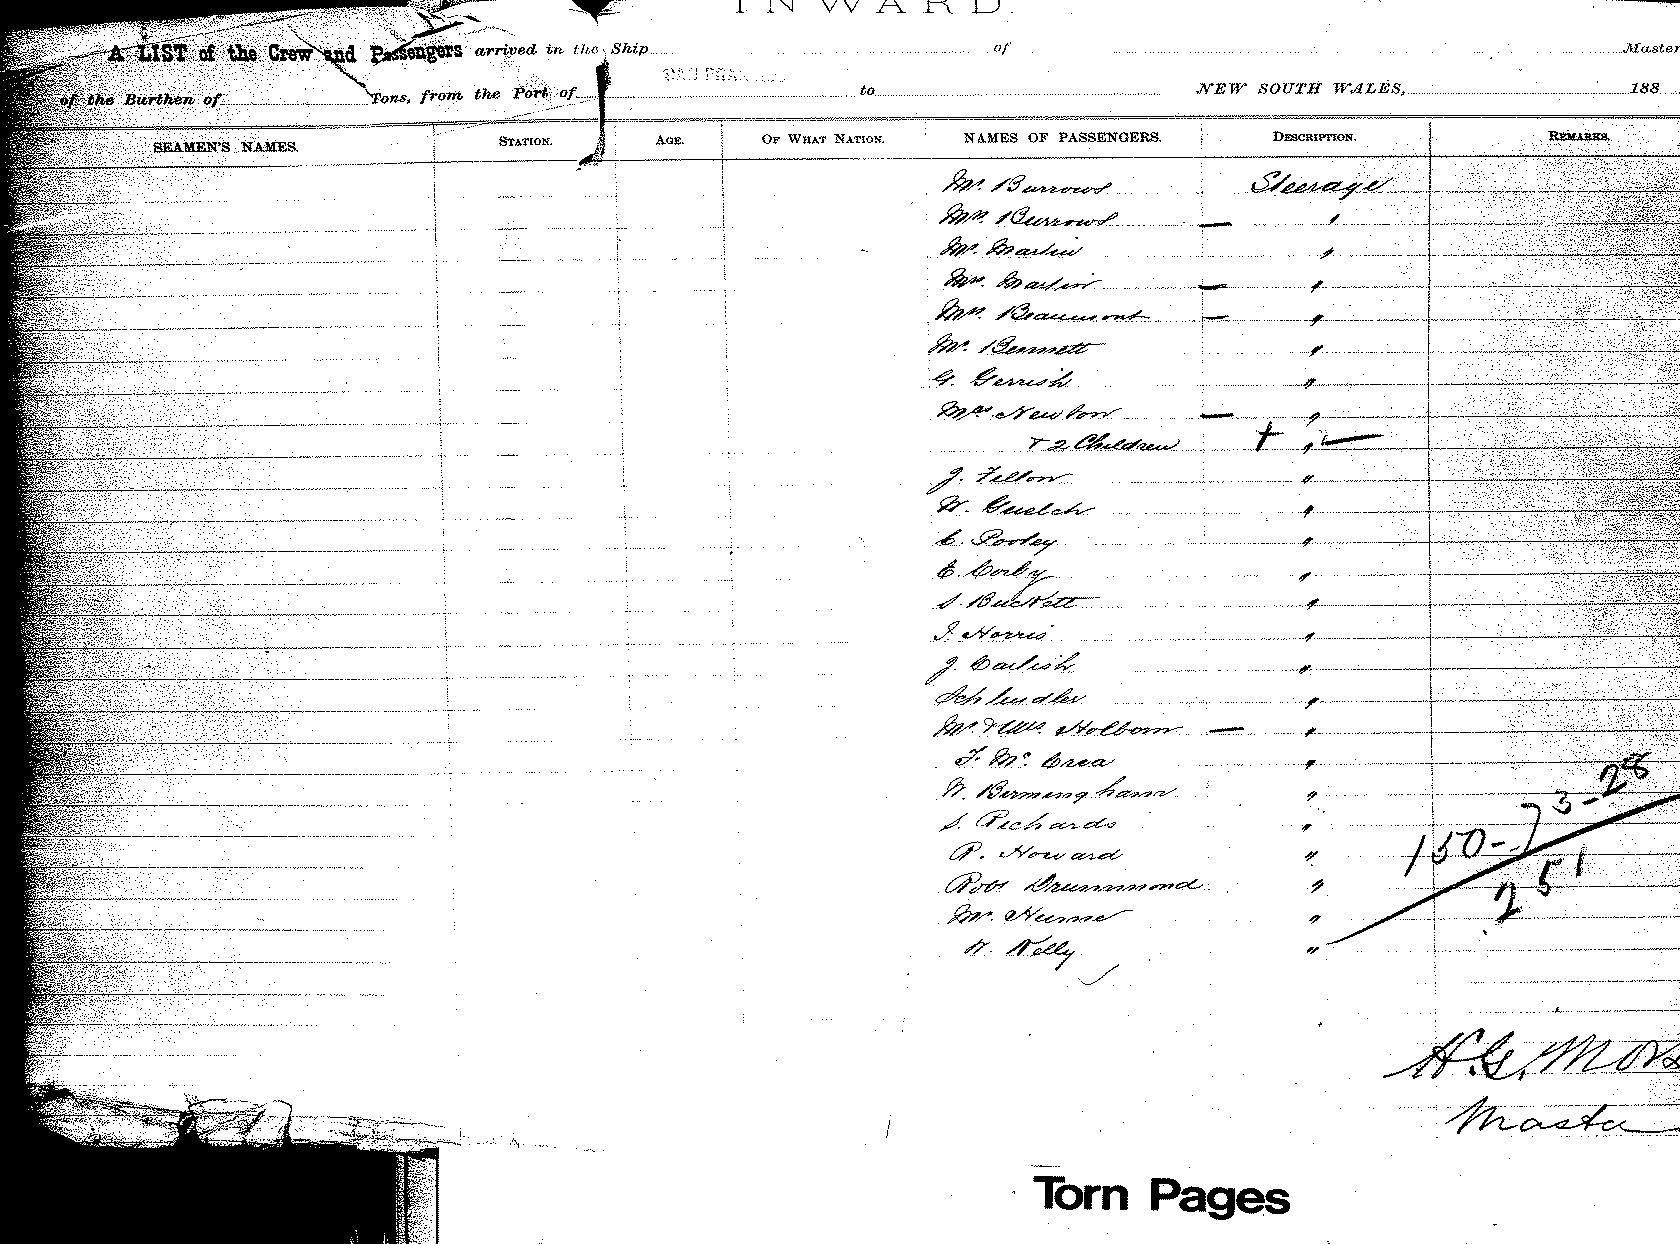 INWARD.
A LIST of the Crew and Passengers arrived in the Ship of Master
of the Burthen of Tons, from the Port of to NEW SOUTH WALES, 188
SEAMEN'S NAMES. STATION. AGE. OF WHAT NATION. NAMES OF PASSENGERS. DESCRIPTION. REMARKS.
Mr. Burrows Steerage
Mrs. Burrows — "
Mr. Martin "
Mrs. Martin — "
Mrs. Beaumont — "
Mr. Bennett "
G. Gerrish "
Mrs Newton — "
+ 2 Children + " —
J. Felton "
W. Guelch "
C. Pooley "
E. Corby "
S. Buckett "
J. Norris "
J. Cartish "
Schlindler "
Mr. & Mrs. Holborn — "
F. Mc. Crea "
W. Bermingham "
S. Richards "
R. Howard "
Robt Drummond "
Mr. Hume "
W. Kelly "
73-28
150-
251
H.G. Mors
Master
Torn Pages